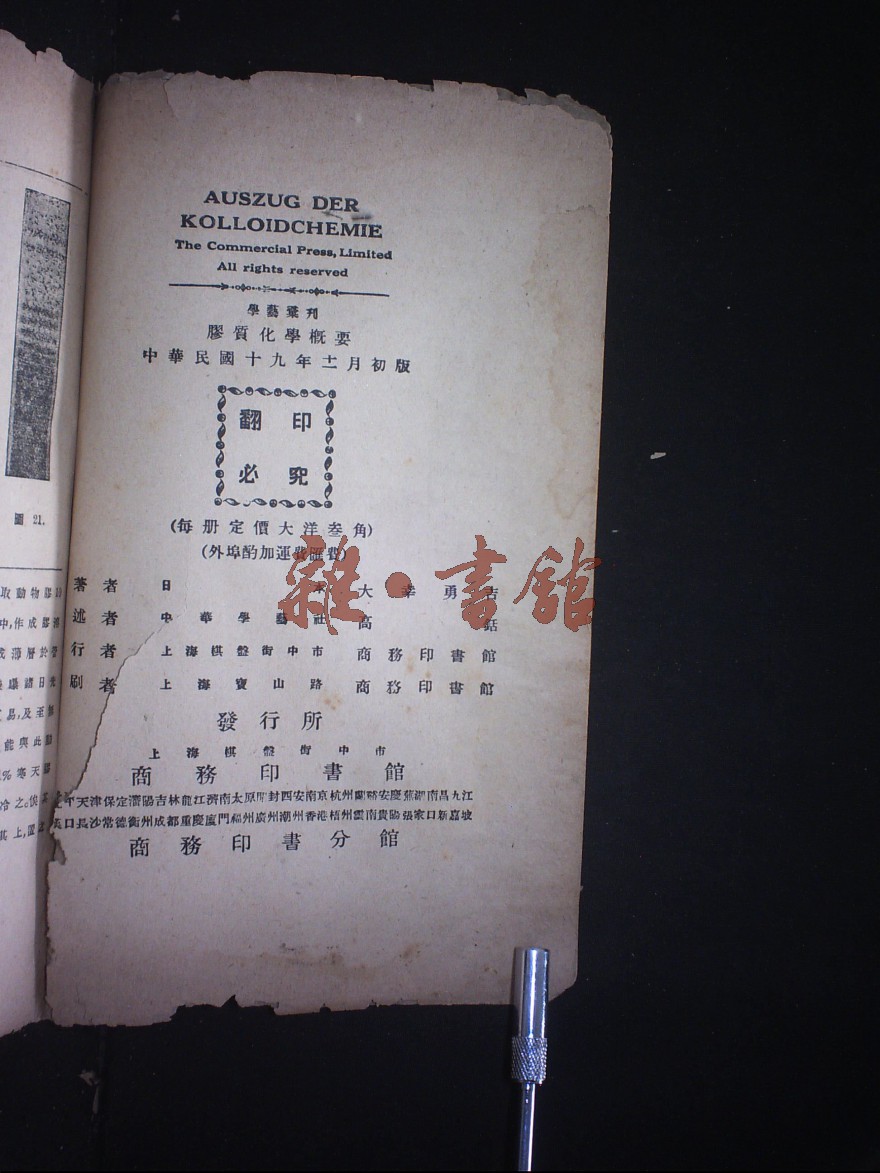 AUSZUG DER
KOLLOIDCHEMIE
The Commercial Press, Limited
All rights reserved
學藝彙刊
膠質化學概要
中華民國十九年十二月初版
翻印
必究
(每册定價大洋叁角)
(外埠酌加運費匯費)
雜·書館
著者 日本 大幸勇吉
述者 中華學藝社 高銛
行者 上海棋盤街中市 商務印書館
刷者 上海寶山路 商務印書館
發行所
上海棋盤街中市
商務印書館
平天津保定瀋陽吉林龍江濟南太原開封西安南京杭州蘭谿安慶蕪湖南昌九江
口長沙常德衡州成都重慶廈門福州廣州潮州香港梧州雲南貴陽張家口新嘉坡
商務印書分館
圖 21.
取動物膠
中,作成膠